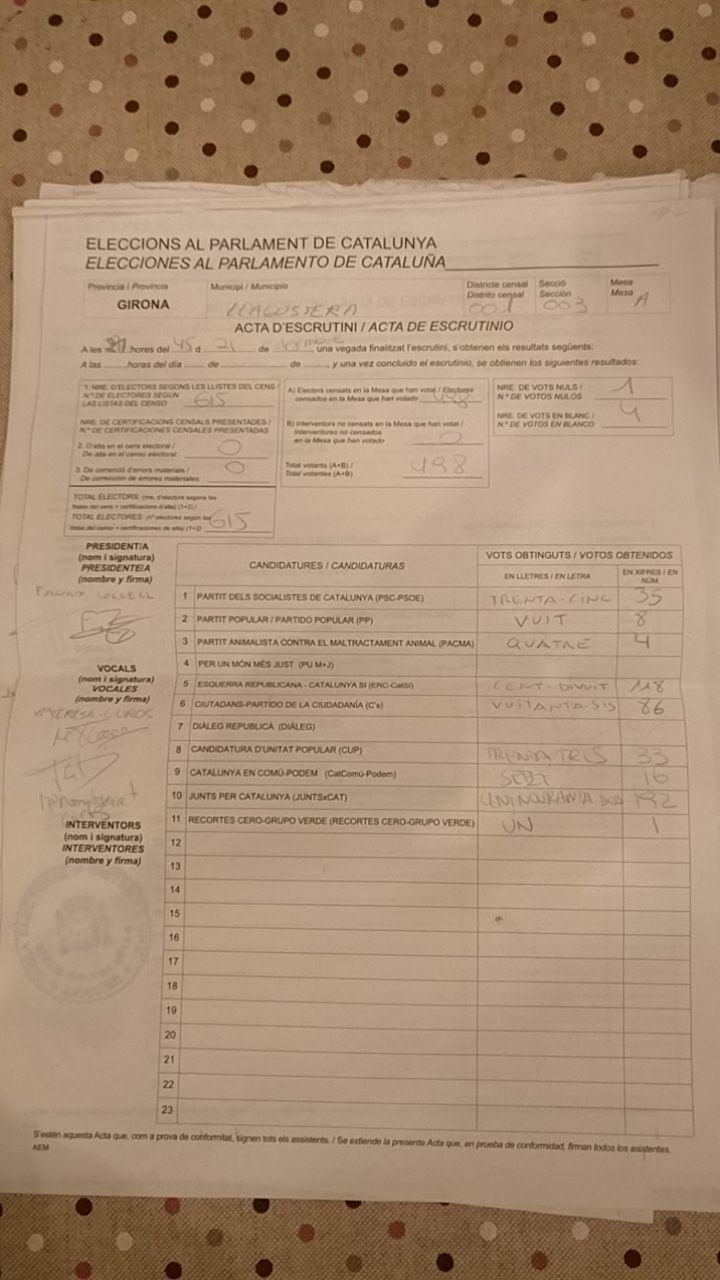 ELECCIONS AL PARLAMENT DE CATALUNYA
ELECCIONES AL PARLAMENTO DE CATALUÑA
Província / Provincia
GIRONA
Municipi / Municipio
LLAGOSTERA
Districte censal
Distrito censal
001
Secció
Sección
003
Mesa
Mesa
A
ACTA D'ESCRUTINI / ACTA DE ESCRUTINIO
A les 21 hores del 45 d 21 de una vegada finalitzat l'escrutini, s'obtenen els resultats següents:
A las horas del día de de , y una vez concluido el escrutinio, se obtienen los siguientes resultados:
1. NRE. D'ELECTORS SEGONS LES LLISTES DEL CENS /
N.º DE ELECTORES SEGÚN
LAS LISTAS DEL CENSO 615
NRE. DE CERTIFICACIONS CENSALS PRESENTADES /
N.º DE CERTIFICACIONES CENSALES PRESENTADAS
2. D'alta en el cens electoral /
De alta en el censo electoral: 0
3. De correcció d'errors materials /
De corrección de errores materiales 0
TOTAL ELECTORS: (nre. d'electors segons les
llistes del cens + certificacions d'alta) (1+2) /
TOTAL ELECTORES: (nº electores según las
listas del censo + certificaciones de alta) (1+2) 615
A) Electors censats en la Mesa que han votat / Electores
censados en la Mesa que han votado 498
B) Interventors no censats en la Mesa que han votat /
Interventores no censados
en la Mesa que han votado 0
Total votants (A+B) /
Total votantes (A+B) 498
NRE. DE VOTS NULS /
N.º DE VOTOS NULOS 1
NRE. DE VOTS EN BLANC /
N.º DE VOTOS EN BLANCO 4
PRESIDENT/A
(nom i signatura)
PRESIDENTE/A
(nombre y firma)
VOCALS
(nom i signatura)
VOCALES
(nombre y firma)
INTERVENTORS
(nom i signatura)
INTERVENTORES
(nombre y firma)
CANDIDATURES / CANDIDATURAS
VOTS OBTINGUTS / VOTOS OBTENIDOS
EN LLETRES / EN LETRA
EN XIFRES / EN NÚM.
1 PARTIT DELS SOCIALISTES DE CATALUNYA (PSC-PSOE) TRENTA-CINC 35
2 PARTIT POPULAR / PARTIDO POPULAR (PP) VUIT 8
3 PARTIT ANIMALISTA CONTRA EL MALTRACTAMENT ANIMAL (PACMA) QUATRE 4
4 PER UN MÓN MÉS JUST (PUM+J)
5 ESQUERRA REPUBLICANA - CATALUNYA SÍ (ERC-CatSí) CENT-DIVUIT 118
6 CIUTADANS-PARTIDO DE LA CIUDADANÍA (C's) VUITANTA-SIS 86
7 DIÀLEG REPUBLICÀ (DIÀLEG)
8 CANDIDATURA D'UNITAT POPULAR (CUP) TRENTA TRES 33
9 CATALUNYA EN COMÚ-PODEM (CatComú-Podem) 16
10 JUNTS PER CATALUNYA (JUNTSxCAT) 192
11 RECORTES CERO-GRUPO VERDE (RECORTES CERO-GRUPO VERDE) UN 1
12
13
14
15
16
17
18
19
20
21
22
23
S'estén aquesta Acta que, com a prova de conformitat, signen tots els assistents. / Se extiende la presente Acta que, en prueba de conformidad, firman todos los asistentes.
AEM